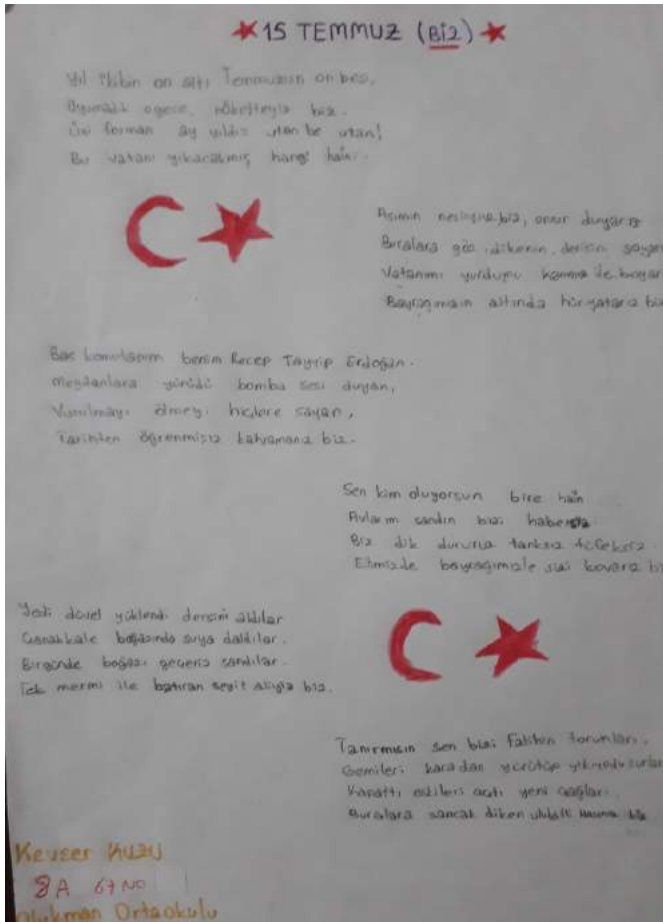 15 TEMMUZ (BİZ)
Yıl ikibin on altı Temmuzun on beşi,
Uyumadık ogece, nöbetteyiz biz.
forman ay yıldız utan be utan!
Bu vatanı yıkacakmış hangi hain.
Asımın nesliyiz biz, onur duyarız
Buralara göz dikenin, derisin
Vatanımı yurdumu kanımla
Bayrağımızın altında hür yatarız
Baş komutanım benim Recep Tayyip Erdoğan.
meydanlara yürüdü bomba sesi duyan,
Vurulmayı ölmeyi hiçlere sayan,
Tarihten öğrenmişiz kahramanız biz.
Sen kim oluyorsun bire hain
Avlarım sandın bizi habersiz
Biz dik dururuz tanksız tüfeksiz
Elimizde bayrağımızla sizi kovarız
Yedi düvel yüklendi dersini aldılar
Çanakkale boğazında suya daldılar.
Birgünde boğazı geçeriz sandılar.
Tek mermi ile batıran seyit alıyız biz.
Tanırmısın sen bizi Fatihin torunları.
Gemileri karadan yürütüp
Kapattı eskileri açtı yeni çağlar.
Buralara sancak diken
Kevser KUZU
8A 67 NO
Ortaokulu